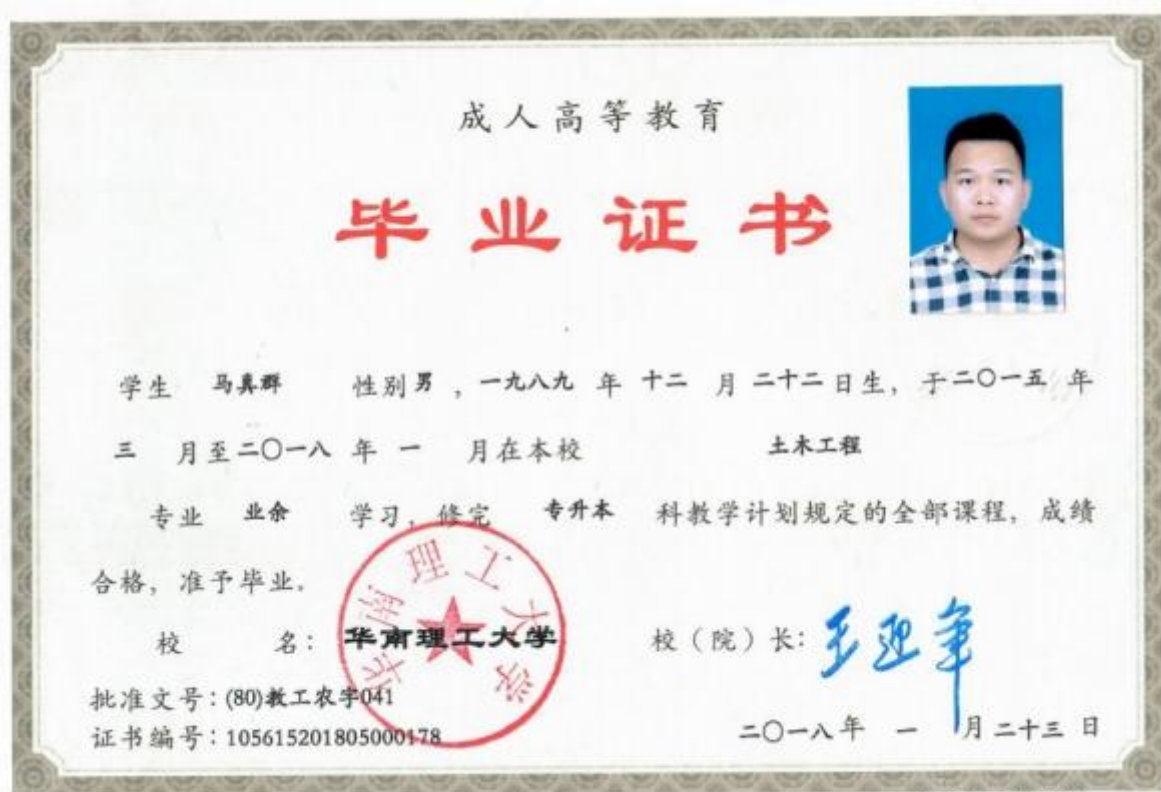 成人高等教育
毕业证书
学生 马真群 性别 男 , 一九八九 年 十二 月 二十二 日生, 于 二〇一五 年
三 月至 二〇一八 年 一 月在本校 土木工程
专业 业余 学习, 修完 专升本 科教学计划规定的全部课程, 成绩
合格, 准予毕业.
华南理工大学
校 名: 华南理工大学 校(院)长: 王迎军
批准文号: (80)教工农字041
证书编号: 105615201805000178 二〇一八 年 一 月 二十三 日